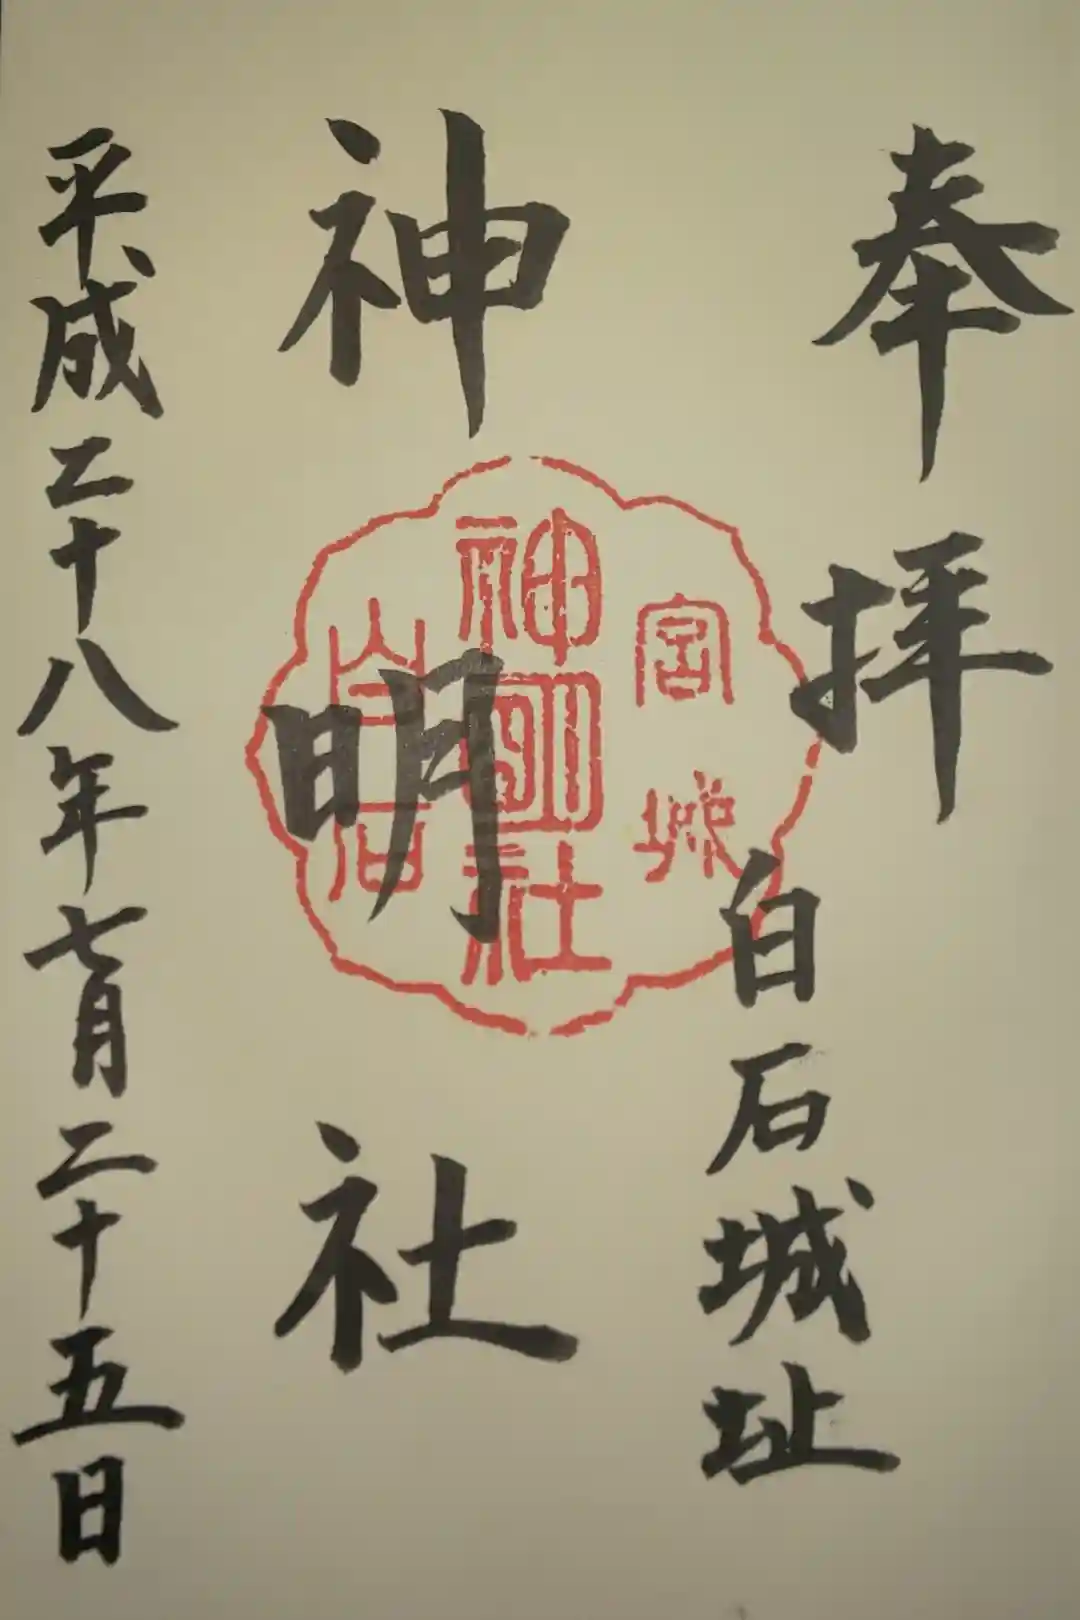 奉拝
白石城址
神明社
平成二十八年七月二十五日
宮城
神明社
白石